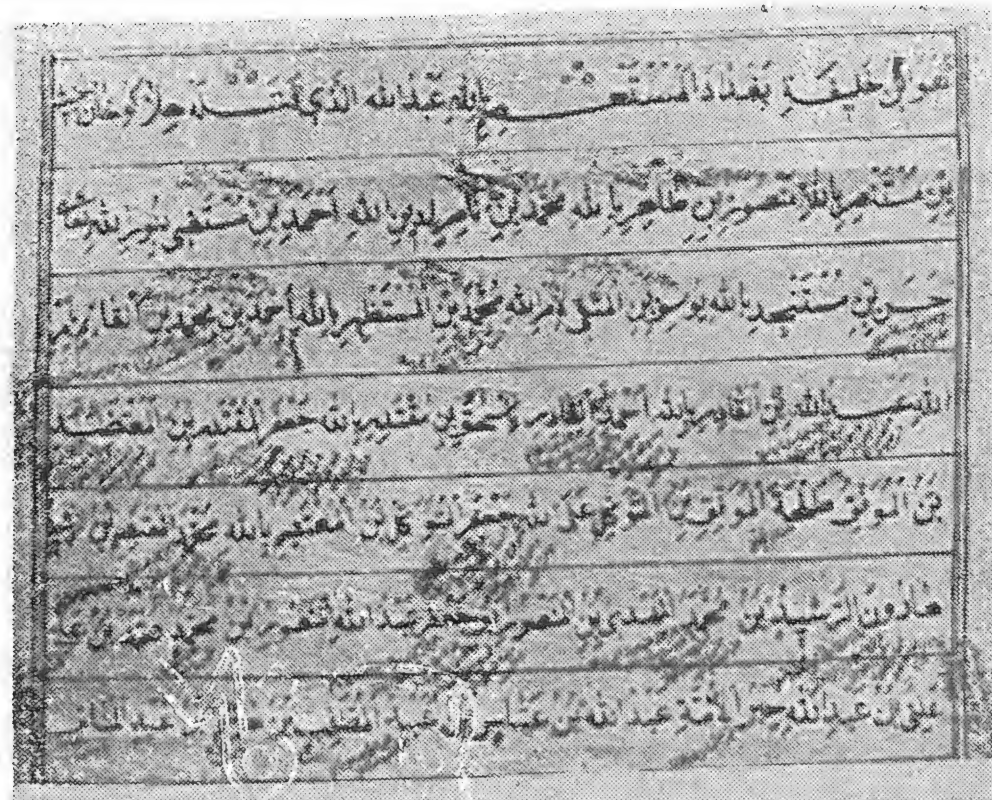 خليفة بغداد المستعصم بالله عبدالله الذي
بن مستنصر بالله منصور بن ظاهر بالله محمد بن ناصر لدين الله احمد بن مستضيئ بنور الله
حسن بن مستنجد بالله يوسف بن المقتفي لامر الله محمد بن المستظهر بالله احمد بن محمد بن القائم بامر
الله عبدالله بن القادر بالله احمد بن اسحق بن مقتدر بالله جعفر المقتدر بن المعتضد
بن الموفق طلحة الموفق بن المتوكل على الله جعفر المتوكل بن المعتصم بالله محمد المعتصم بن
هارون الرشيد بن محمد المهدي بن المنصور عبدالله بن محمد بن
علي بن عبدالله حبر الامة عبدالله بن عباس بن عبد المطلب بن بن عبد المناف